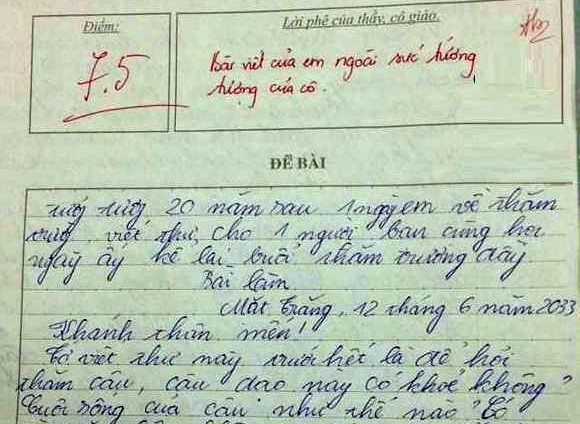 Điểm:
7.5
Lời phê của thầy, cô giáo.
Bài viết của em ngoài sức tưởng
tượng của cô.
ĐỀ BÀI
20 năm sau 1 ngày em về thăm
trường viết thư cho 1 người bạn cùng học
ngày ấy kể lại buổi thăm trường đầy
Bài làm
Mặt trăng, 12 tháng 6 năm 2033
Khanh thân mến!
Tớ viết thư này trước hết là để hỏi
thăm cậu, cậu dạo này có khoẻ không?
Cuộc sống của cậu như thế nào? Có